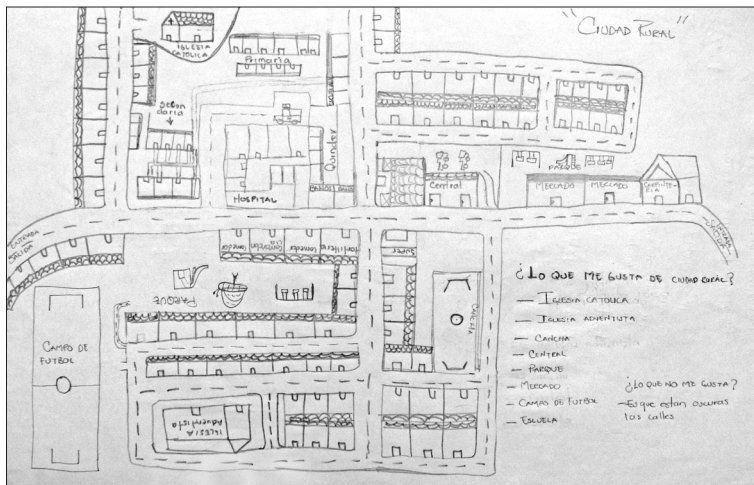 "CIUDAD RURAL"
IGLESIA
CATOLICA
Primaria
Secun
daria
Kinder
HOSPITAL
Central
PARQUE
MERCADO
MERCADO
ENTRADA
SALIDA
Tortilleria
Comedor
Comedor
Super
PARQUE
CANCHA
CAMPO DE
FUTBOL
IGLESIA
Adventista
¿LO QUE ME GUSTA DE CIUDAD RURAL?
— IGLESIA CATOLICA
— IGLESIA ADVENTISTA
— CANCHA
— CENTRAL
— PARQUE
— MERCADO
— CAMPO DE FUTBOL
— ESCUELA
¿LO QUE NO ME GUSTA?
— Es que estan oscuras
las calles